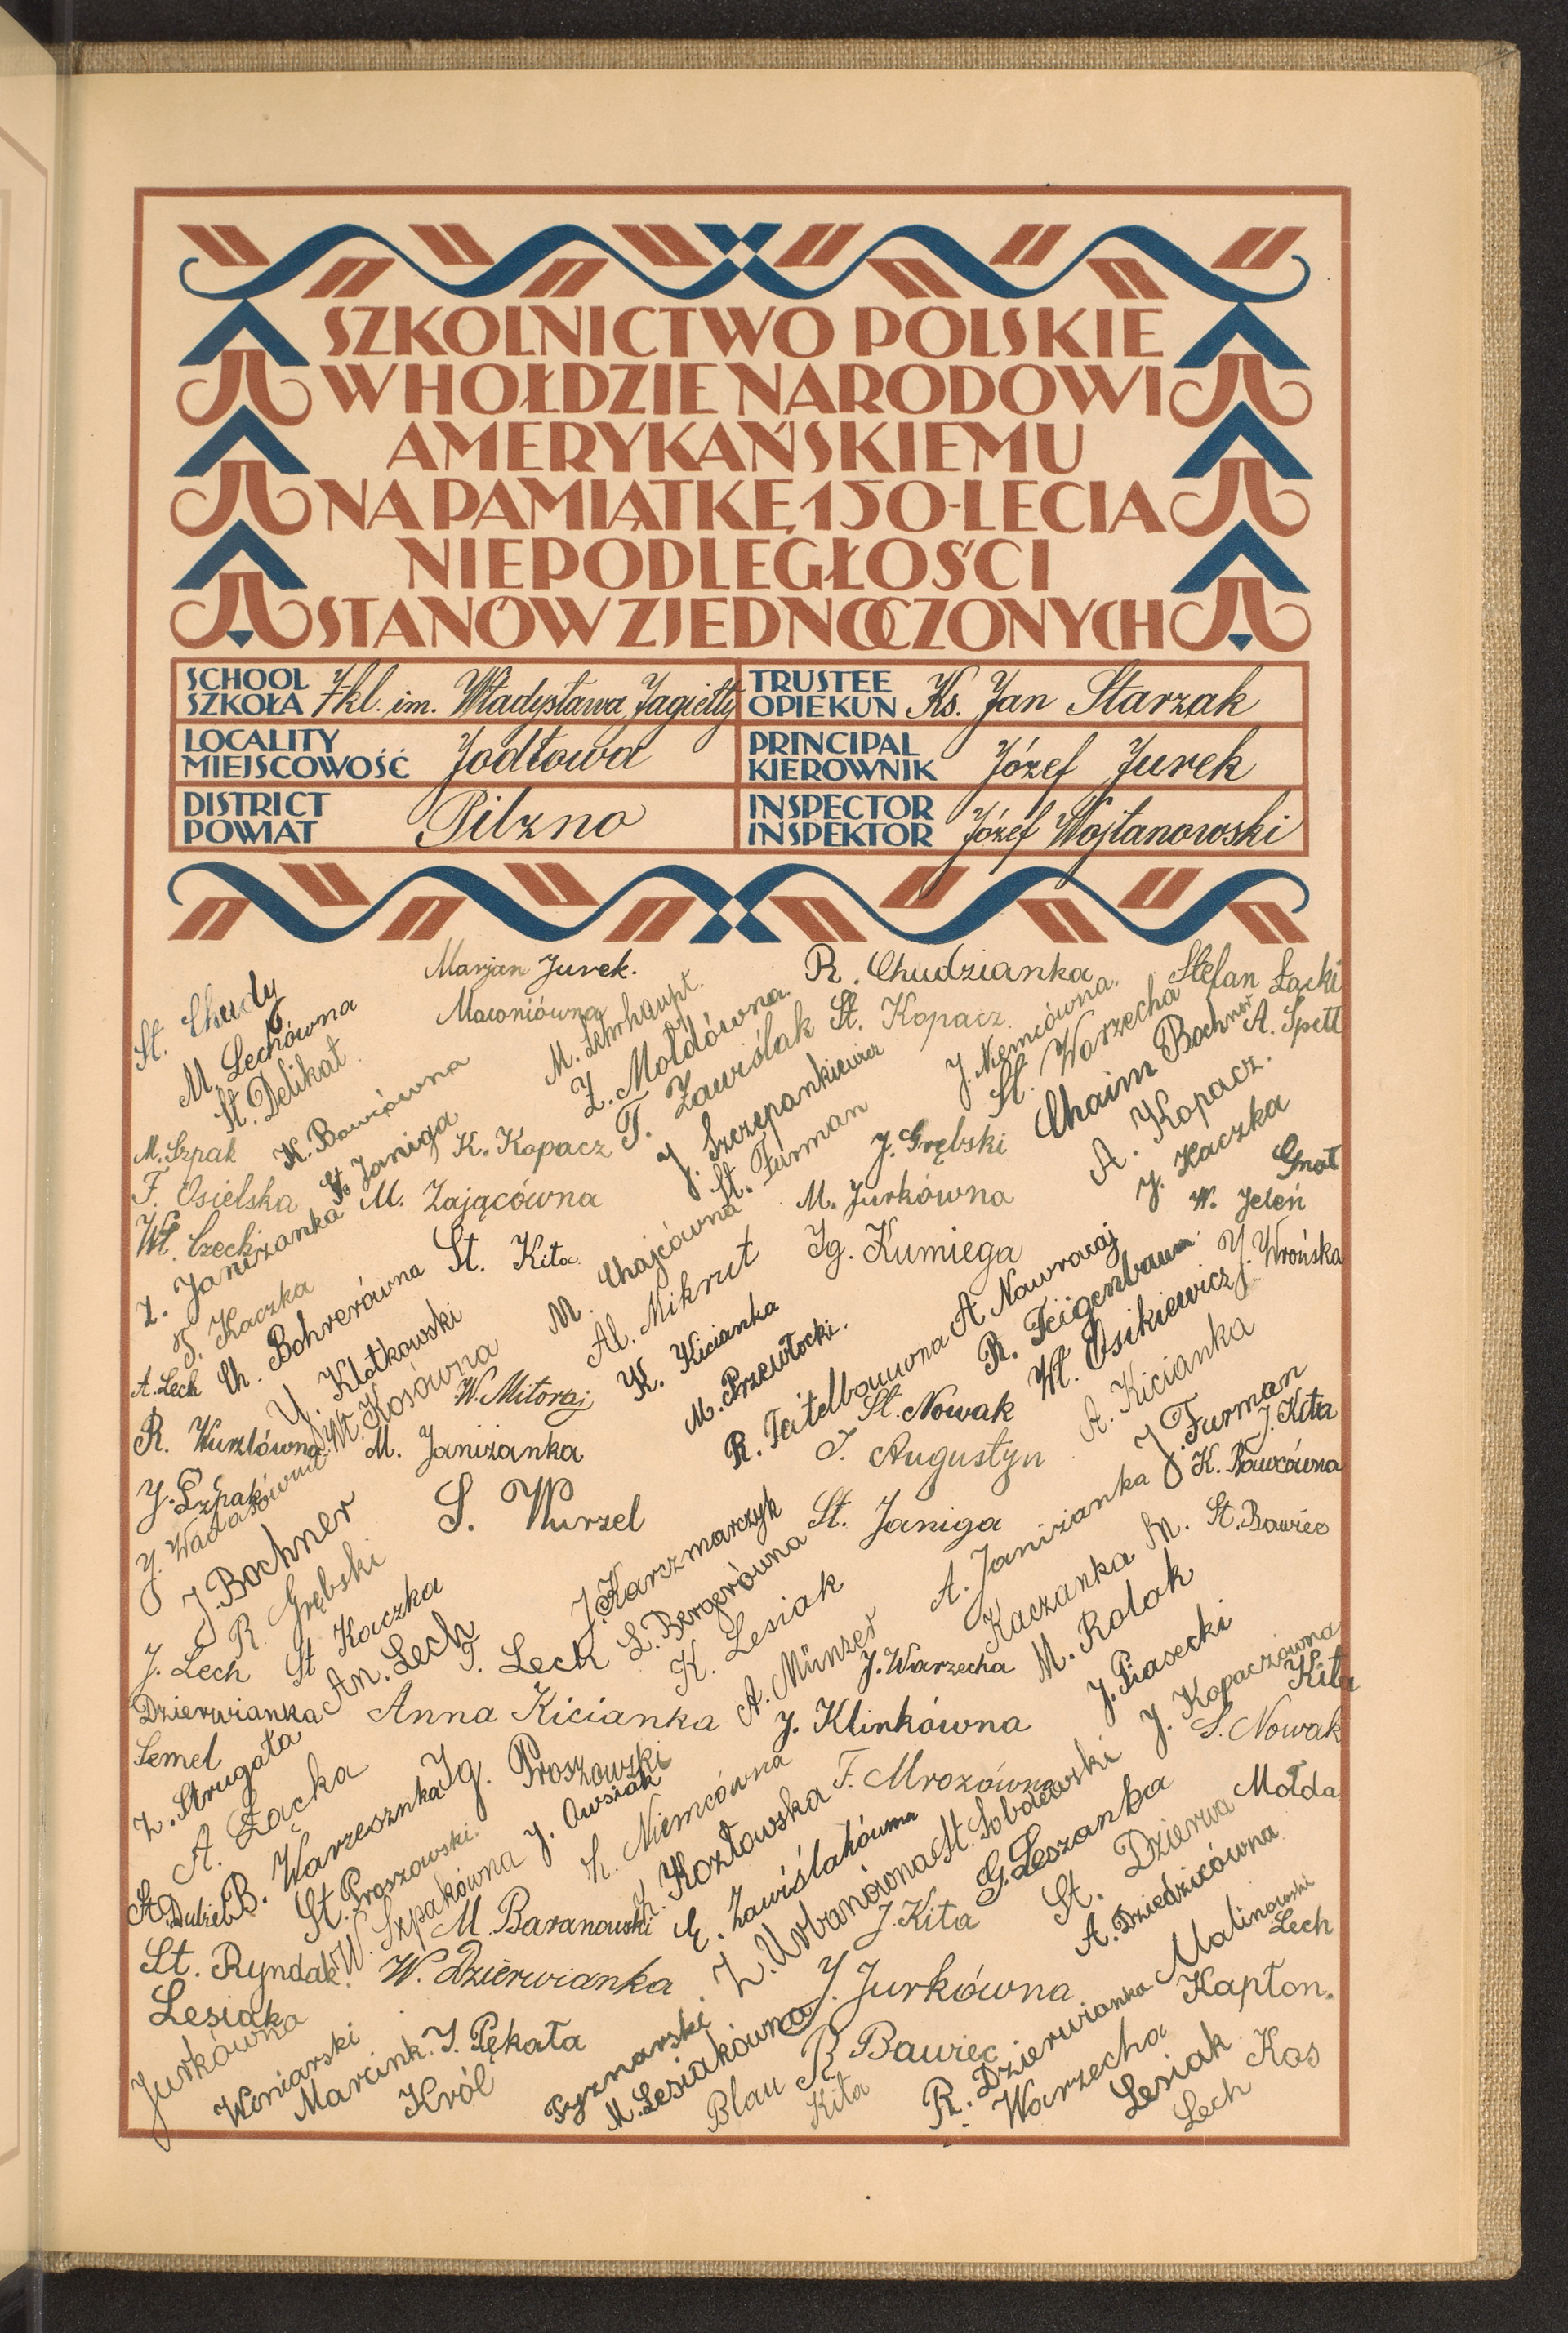 SZKOLNICTWO POLSKIE
W HOŁDZIE NARODOWI
AMERYKAŃSKIEMU
NA PAMIĄTKĘ 150-LECIA
NIEPODLEGŁOŚCI
STANÓW ZJEDNOCZONYCH
SCHOOL
SZKOŁA 7kl. im. Władysława Jagiełły
TRUSTEE
OPIEKUN Ks. Jan Starzak
LOCALITY
MIEJSCOWOŚĆ Jodłowa
PRINCIPAL
KIEROWNIK Józef Jurek
DISTRICT
POWIAT Pilzno
INSPECTOR
INSPEKTOR Józef Wojtanowski
Marjan Jurek.
R. Chudzianka
Stefan Łącki
St. Chudy
Macąniówna
M. Lehrhaupt.
M. Lechówna
Z. Mołdówna.
St. Kopacz.
J. Niemcówna.
St. Warzecha
Chaim Bochner
A. Spett
St. Delikat.
T. Zawiślak
J. Szczepankiewicz
A. Kopacz.
M. Szpak
K. Bawiówna
K. Kopacz
St. Furman
J. Grębski
J. Kaczka
Gnat
F. Osielska
St. Janiga
M. Zającówna
M. Jurkówna
W. Jeleń
Wł. Czech
Z. Janiżanka
St. Kita
M. Chajcówna
Al. Mikrut
Ig. Kumiega
J. Wrońska
T. Kaczka
Ch. Bohrerówna
A. Nawracaj
R. Feigenbaum
Wł. Osikiewicz
A. Lech
J. Klotkowski
W. Mitoraj
K. Kicianka
M. Przewłocki.
R. Teitelbaumwna
St. Nowak
A. Kicianka
R. Wurzlówna
W. Kosówna
M. Janiżanka
T. Augustyn
J. Furman
J. Kita
J. Szpak
J. Wadasówna
S. Wurzel
K. Bawcówna
J. Bochner
J. Karczmarczyk
St. Janiga
A. Janiżanka
St. Bawiec
R. Grębski
L. Bergerówna
Kaczanka M.
J. Lech
St. Kaczka
T. Lech
K. Lesiak
J. Warzecha
M. Rolak
Dzierwianka
An. Lech
Anna Kicianka
A. Münzer
J. Klinkówna
J. Piasecki
J. Kopaczówna
Kita
Semel
S. Nowak
Z. Strugała
A. Łącka
Ig. Proszowski
B. Warzesznka
J. Owsiak
Z. Niemcówna
F. Mrozówna
St. Dubiel
St. Proszowski.
Z. Kozłowska
St. Sobaewski
G. Leszanka
St. Dzierwa
Mołda
W. Szpakówna
M. Baranowski
E. Zawiślakówna
Z. Urbanówna
J. Kita
A. Dziedzicówna
St. Ryndak.
W. Dzierwianka
Malinowski
Lech
Lesiak
J. Jurkówna
Kapłon.
Jurkówna
Woniarski
Marcink.
J. Pękała
Król
Pyznarski.
M. Lesiakówna
Blau
R. Bawiec
Kita
R. Dzierwianka
Warzecha
Lesiak
Lech
Kos